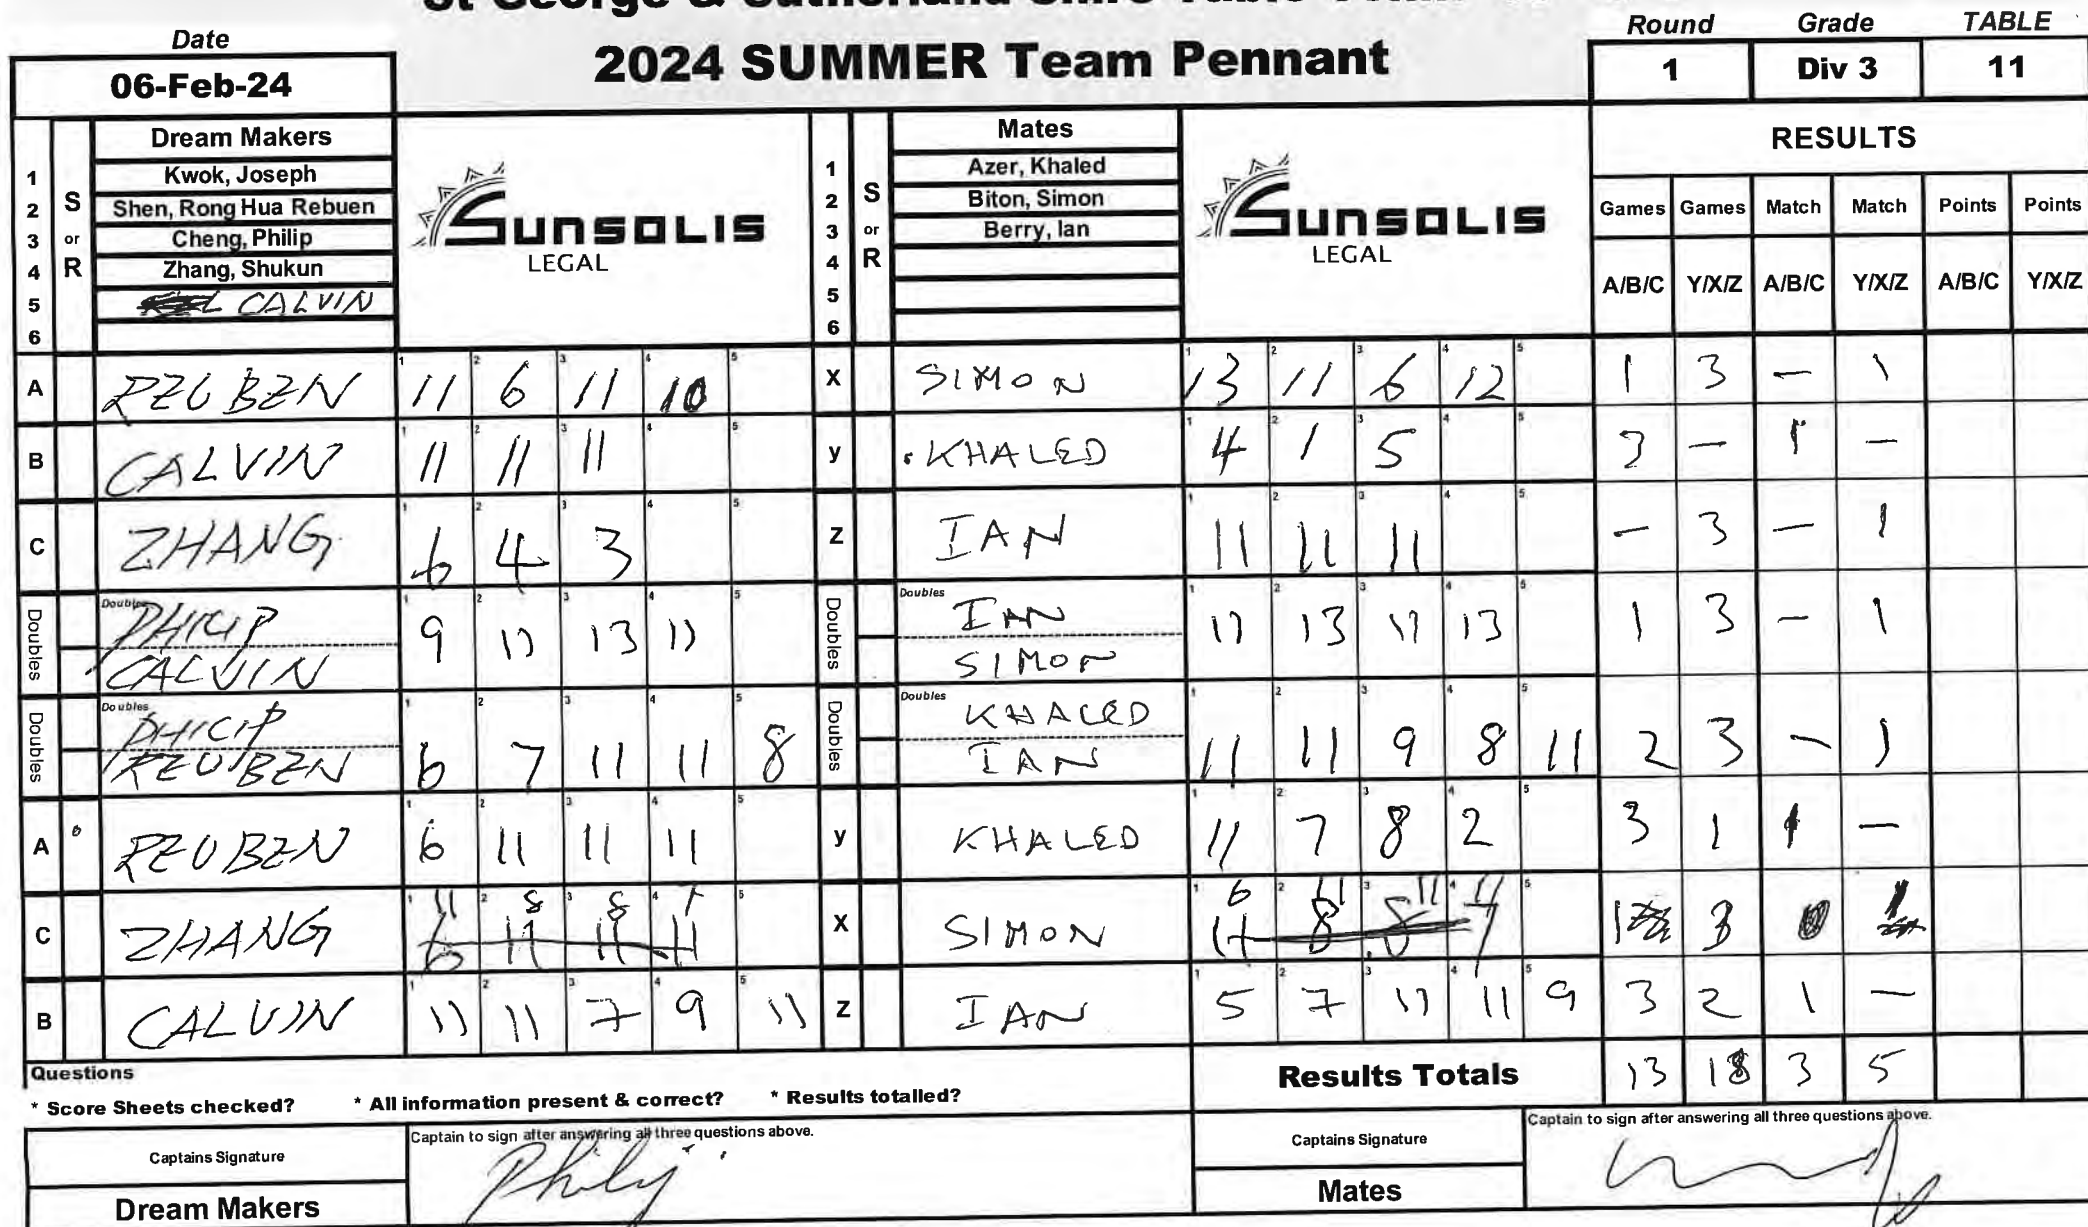 Date
2024 SUMMER Team Pennant
Round Grade TABLE
06-Feb-24
1 Div 3 11
Dream Makers
Mates
RESULTS
1 Kwok, Joseph
2 Shen, Rong Hua Rebuen
3 Cheng, Philip
4 Zhang, Shukun
5 CALVIN
6
S or R
SUNSOLIS
LEGAL
1 Azer, Khaled
2 Biton, Simon
3 Berry, Ian
4
5
6
S or R
SUNSOLIS
LEGAL
Games Games Match Match Points Points
A/B/C Y/X/Z A/B/C Y/X/Z A/B/C Y/X/Z
A REUBEN 11 6 11 10 X SIMON 13 11 6 12 1 3 - 1
B CALVIN 11 11 11 y KHALED 4 1 5 3 - 1 -
C ZHANG 6 4 3 Z IAN 11 11 11 - 3 - 1
Doubles Doubles PHILIP CALVIN 9 11 13 11 Doubles Doubles IAN SIMON 11 13 11 13 1 3 - 1
Doubles Doubles PHILIP REUBEN 6 7 11 11 8 Doubles Doubles KHALED IAN 11 11 9 8 11 2 3 - 1
A REUBEN 6 11 11 11 y KHALED 11 7 8 2 3 1 1 -
C ZHANG 11 8 8 7 X SIMON 6 11 11 11 1 3 0 1
B CALVIN 11 11 7 9 11 Z IAN 5 7 11 11 9 3 2 1 -
Questions
* Score Sheets checked? * All information present & correct? * Results totalled?
Results Totals 13 18 3 5
Captains Signature
Captain to sign after answering all three questions above.
Philip
Dream Makers
Captains Signature
Captain to sign after answering all three questions above.
Mates